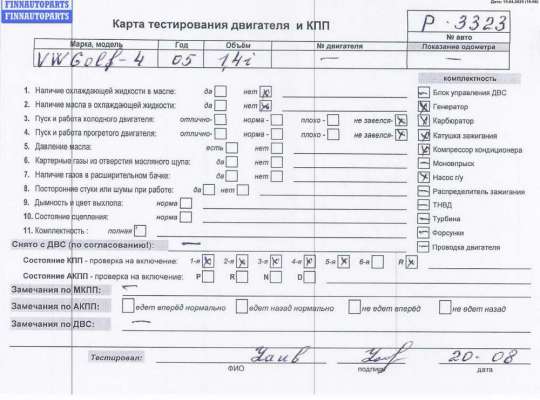 FINNAUTOPARTS
FINNAUTOPARTS
Карта тестирования двигателя и КПП
P-3323
№ авто
Марка, модель Год Объём № двигателя Показание одометра
VW Golf-4 05 1,4i — —
комплектность
1. Наличие охлаждающей жидкости в масле: да нет x
2. Наличие масла в охлаждающей жидкости: да нет x
3. Пуск и работа холодного двигателя: отлично- норма - плохо - не завелся- x
4. Пуск и работа прогретого двигателя: отлично- норма - плохо - не завелся- x
5. Давление масла: есть нет
6. Картерные газы из отверстия масляного щупа: да нет
7. Наличие газов в расширительном бачке: да нет
8. Посторонние стуки или шумы при работе: да нет
9. Дымность и цвет выхлопа: норма
10. Состояние сцепления: норма
11. Комплектность : полная
— Блок управления ДВС
x Генератор
x Карбюратор
x Катушка зажигания
x Компрессор кондиционера
— Моновпрыск
x Насос г/у
— Распределитель зажигания
— ТНВД
— Турбина
— Форсунки
— Проводка двигателя
Снято с ДВС (по согласованию!): —
Состояние КПП - проверка на включение: 1-я x 2-я x 3-я x 4-я x 5-я x 6-я R x
Состояние АКПП - проверка на включение: P R N D
Замечания по МКПП: —
Замечания по АКПП: едет вперёд нормально едет назад нормально не едет вперёд не едет назад
Замечания по ДВС: —
Тестировал: 20-08
ФИО подпись дата